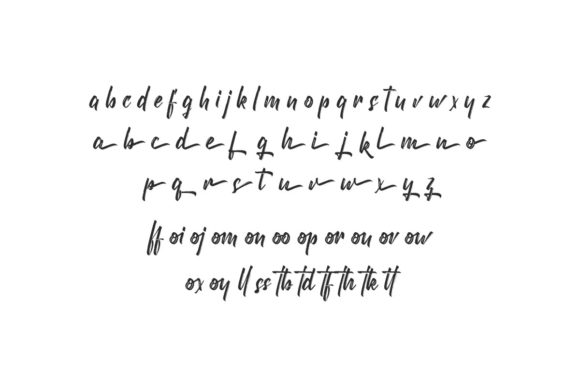 a b c d e f g h i j k l m n o p q r s t u v w x y z
a b c d e f g h i j k l m n o
p q r s t u v w x y z
ff oi oj om on oo op or ou ov ow
ox oy ll ss tb td tf th tk tt